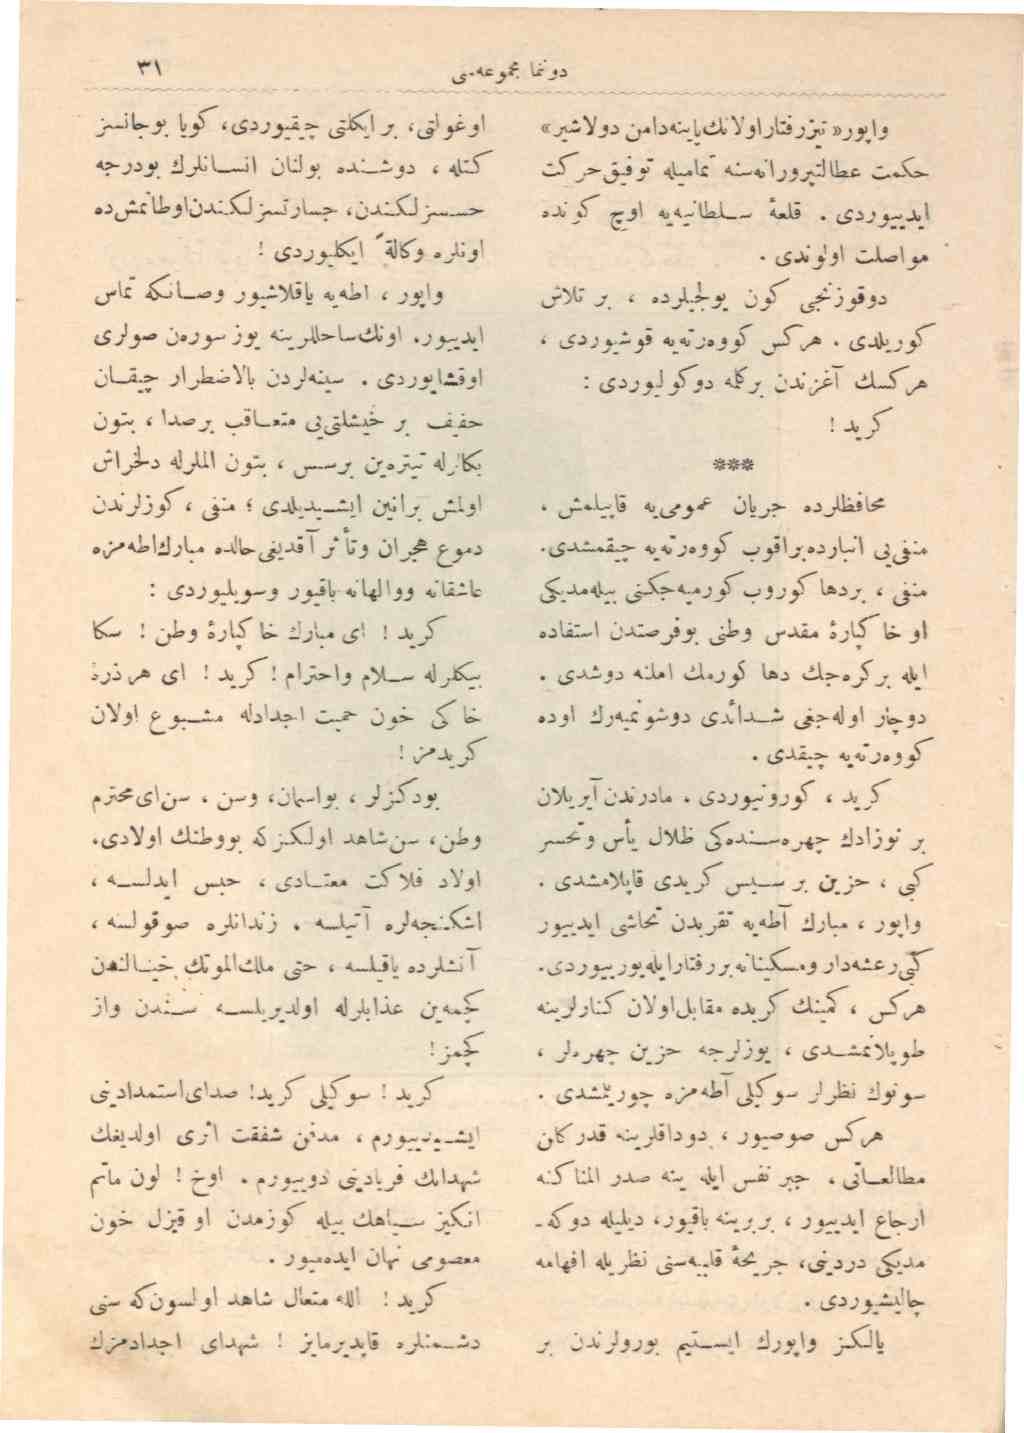 دوننما مجموعه‌سی
٣١
واپور« تیزرفتار اولانك پاینه دامن دولاشیر»
حکمت عطالتپرورانه‌سنه تمامیله توفیق حرکت
ایدییوردی . قلعهٔ سلطانیه‌یه اوچ کونده
مواصلت اولوندی .
دوقوزنجی کون یولجیلرده ، بر تلاش
کوریلدی . هرکس کووه‌رته‌یه قوشیوردی ،
هرکسك آغزندن برکلمه دوکولیوردی :
کرید !
***
محافظلرده جریان عمومی‌یه قاپیلمش ،
منفی‌یی انبارده براقوب کووه‌رته‌یه چیقمشدی.
منفی ، بردها کوروب کورمیه‌جکنی بیله‌مدیکی
او خاکپارهٔ مقدس وطنی بوفرصتدن استفاده
ایله برکره‌جك دها کورمك املنه دوشدی .
دوچار اوله‌جغی شدائدی دوشونمیه‌رك اوده
کووه‌رته‌یه چیقدی .
کرید ، کورونیوردی . مادرندن آیریلان
بر نوزادك چهره‌سنده‌کی ظلال یأس وتحسر
کبی ، حزین بر سیس کریدی قاپلامشدی .
واپور ، مبارك آطه‌یه تقربدن تحاشی ایدییور
کبی رعشه‌دار ومسکینانه بررفتارایله یورییوردی.
هرکس ، کمینك کریده مقابل اولان کنارلرینه
طوپلانمشدی ، یوزلرجه حزین چهره‌لر ،
سونوك نظرلر سوکیلی آطه‌مزه چوریلمشدی .
هرکس صوصیور ، دوداقلرینه قدرکلن
مطالعاتی ، جبر نفس ایله ینه صدر المناکنه
ارجاع ایدییور ، بربرینه باقیور، دیلیله دوکه‌ـ
مدیکی دردینی، جریحهٔ قلبیه‌سنی نظریله افهامه
چالیشیوردی .
یالکز واپورك ایستیم بورولرندن بر
اوغولتی، بر ایکلتی چیقیوردی، کویا بوجانسز
کتله ، دوشنده بولنان انسانلرك بودرجه
حسسزلکندن، جسارتسزلکندن اوطانمش‌ده
اونلره وکالةً ایکلیوردی !
واپور ، اطه‌یه یاقلاشیور وصانکه تماس
ایدییور. اونك ساحللرینه یوز سوره‌ن صولری
اوقشایوردی . سینه‌لردن بالاضطرار چیقان
خفیف بر خیشلتی‌یی متعاقب برصدا ، بتون
بکالرله تیتره‌ین برسس ، بتون الملرله دلخراش
اولمش برانین ایشیدیلدی ؛ منفی ، کوزلرندن
دموع هجران وتأثر آقدیغی حالده مبارك اطه‌مزه
عاشقانه ووالهانه باقیور وسویلیوردی :
کرید ! ای مبارك خاکپارهٔ وطن ! سکا
بیکلرله سلام واحترام ! کرید ! ای هر ذرهٔ
خاکی خون حمیت اجدادله مشبوع اولان
کریدمز !
بودکزلر ، بواسمان، وسن ، سن‌ای محترم
وطن، سن شاهد اولکزکه بووطنك اولادی،
اولاد فلاکت معتادی ، حبس ایدلسه ،
اشکنجه‌لره آتیلسه ، زندانلره صوقولسه ،
آتشلرده یاقیلسه ، حتی ملك الموتك خیالندن
کچمه‌ین عذابلرله اولدیریلسه سندن واز
کچمز !
کرید ! سوکیلی کرید! صدای استمدادینی
ایشیدییورم ، مدفن شفقت اثری اولدیغك
شهدانك فریادینی دویییورم . اوخ ! لون ماتم
انکیز سیاهك بیله کوزمدن او قیزل خون
معصومی نهان ایده‌میور .
کرید ! الله متعال شاهد اولسون‌که سنی
دشمنلره قاپدیرمایز ! شهدای اجدادمزك